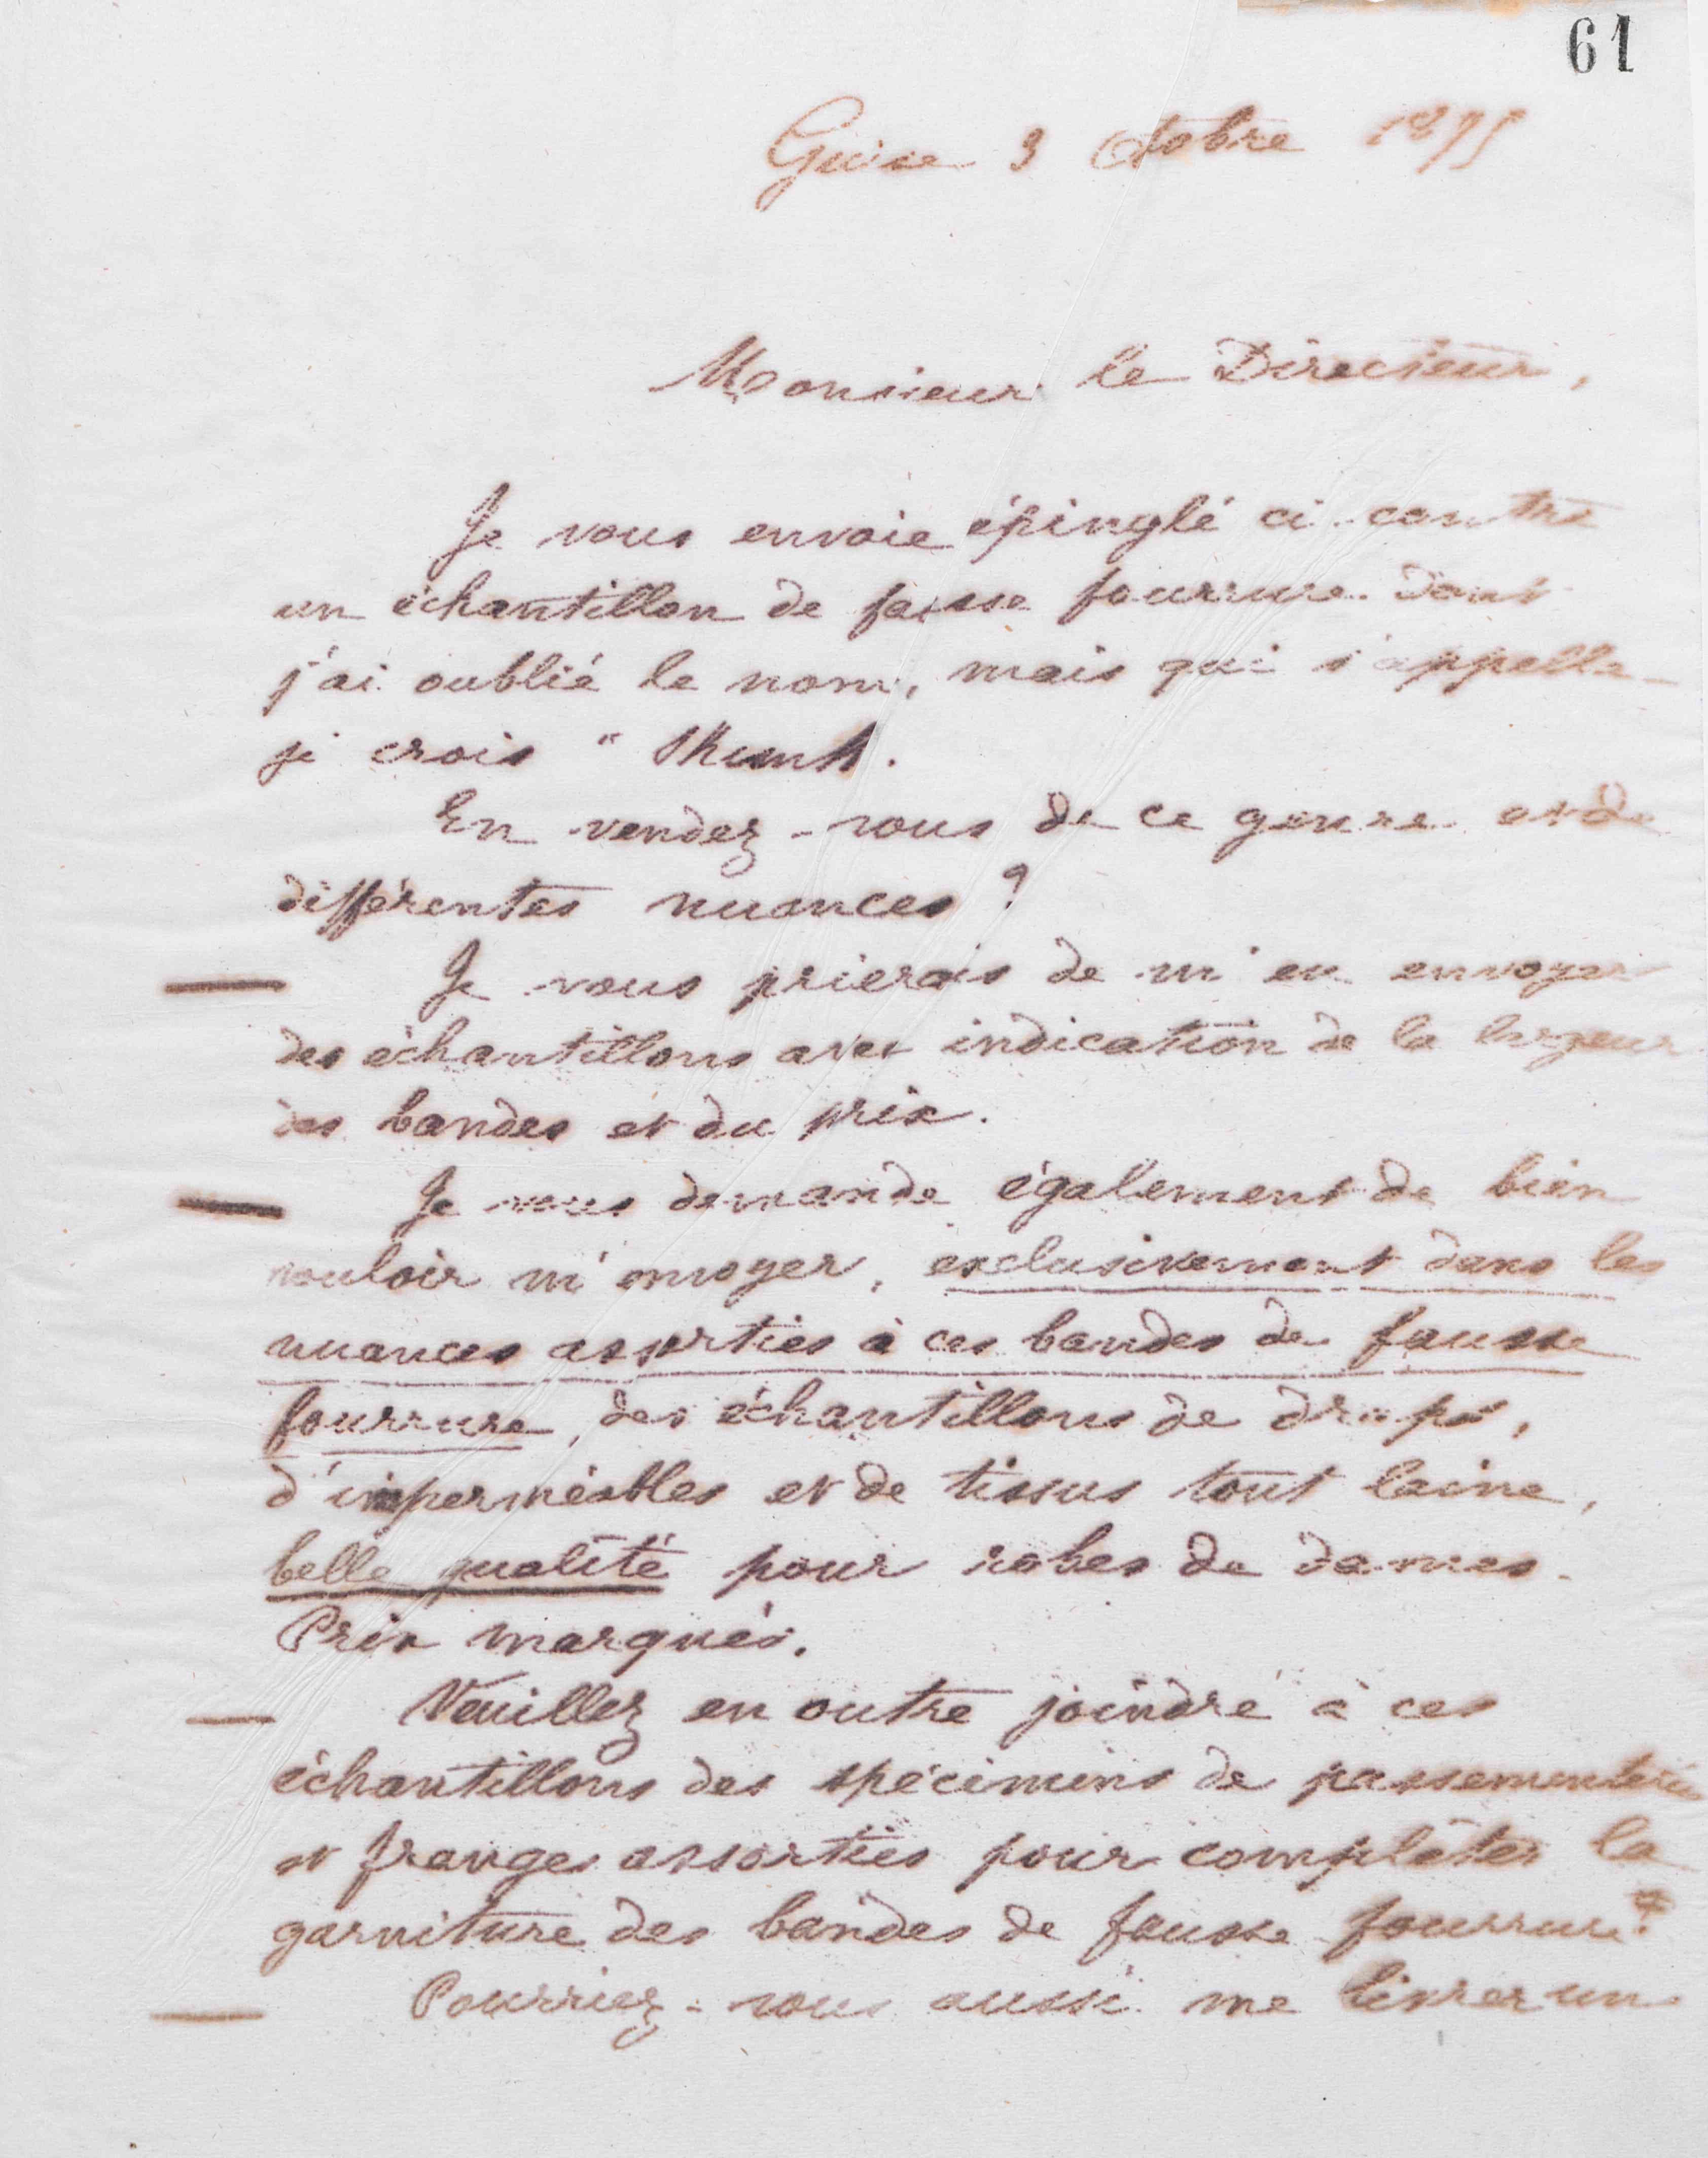 61
Guise 3 Octobre 18
Monsieur le Directeur,
Je vous envoie épinglé ci-contre
un échantillon de fausse fourrure dont
j'ai oublié le nom, mais qui s'appelle
je crois "
En vendez-vous de ce genre et de
différentes nuances ?
— Je vous prierais de m'en envoyer
des échantillons avec indication de la largeur
des bandes et du prix.
— Je vous demande également de bien
vouloir m'envoyer, exclusivement dans les
nuances assorties à ces bandes de fausse
fourrure, des échantillons de draps,
d'imperméables et de tissus tout laine,
belle qualité pour robes de dames.
Prix marqués.
— Veuillez en outre joindre à ces
échantillons des spécimens de passementerie
et franges assorties pour compléter la
garniture des bandes de fausse fourrure.
— Pourriez-vous aussi me livrer un